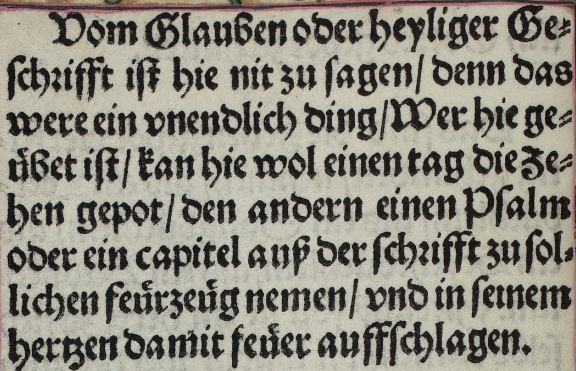 Vom Glauben oder heyliger Ge⸗
schrifft ist hie nit zu sagen/ denn das
were ein vnendlich ding/Wer hie ge⸗
übet ist/ kan hie wol einen tag die Ze⸗
hen gepot/ den andern einen Psalm
oder ein capitel auß der schrifft zu sol⸗
lichen feürzeüg nemen/ vnd in seinem
hertzen damit feüer auffschlagen.